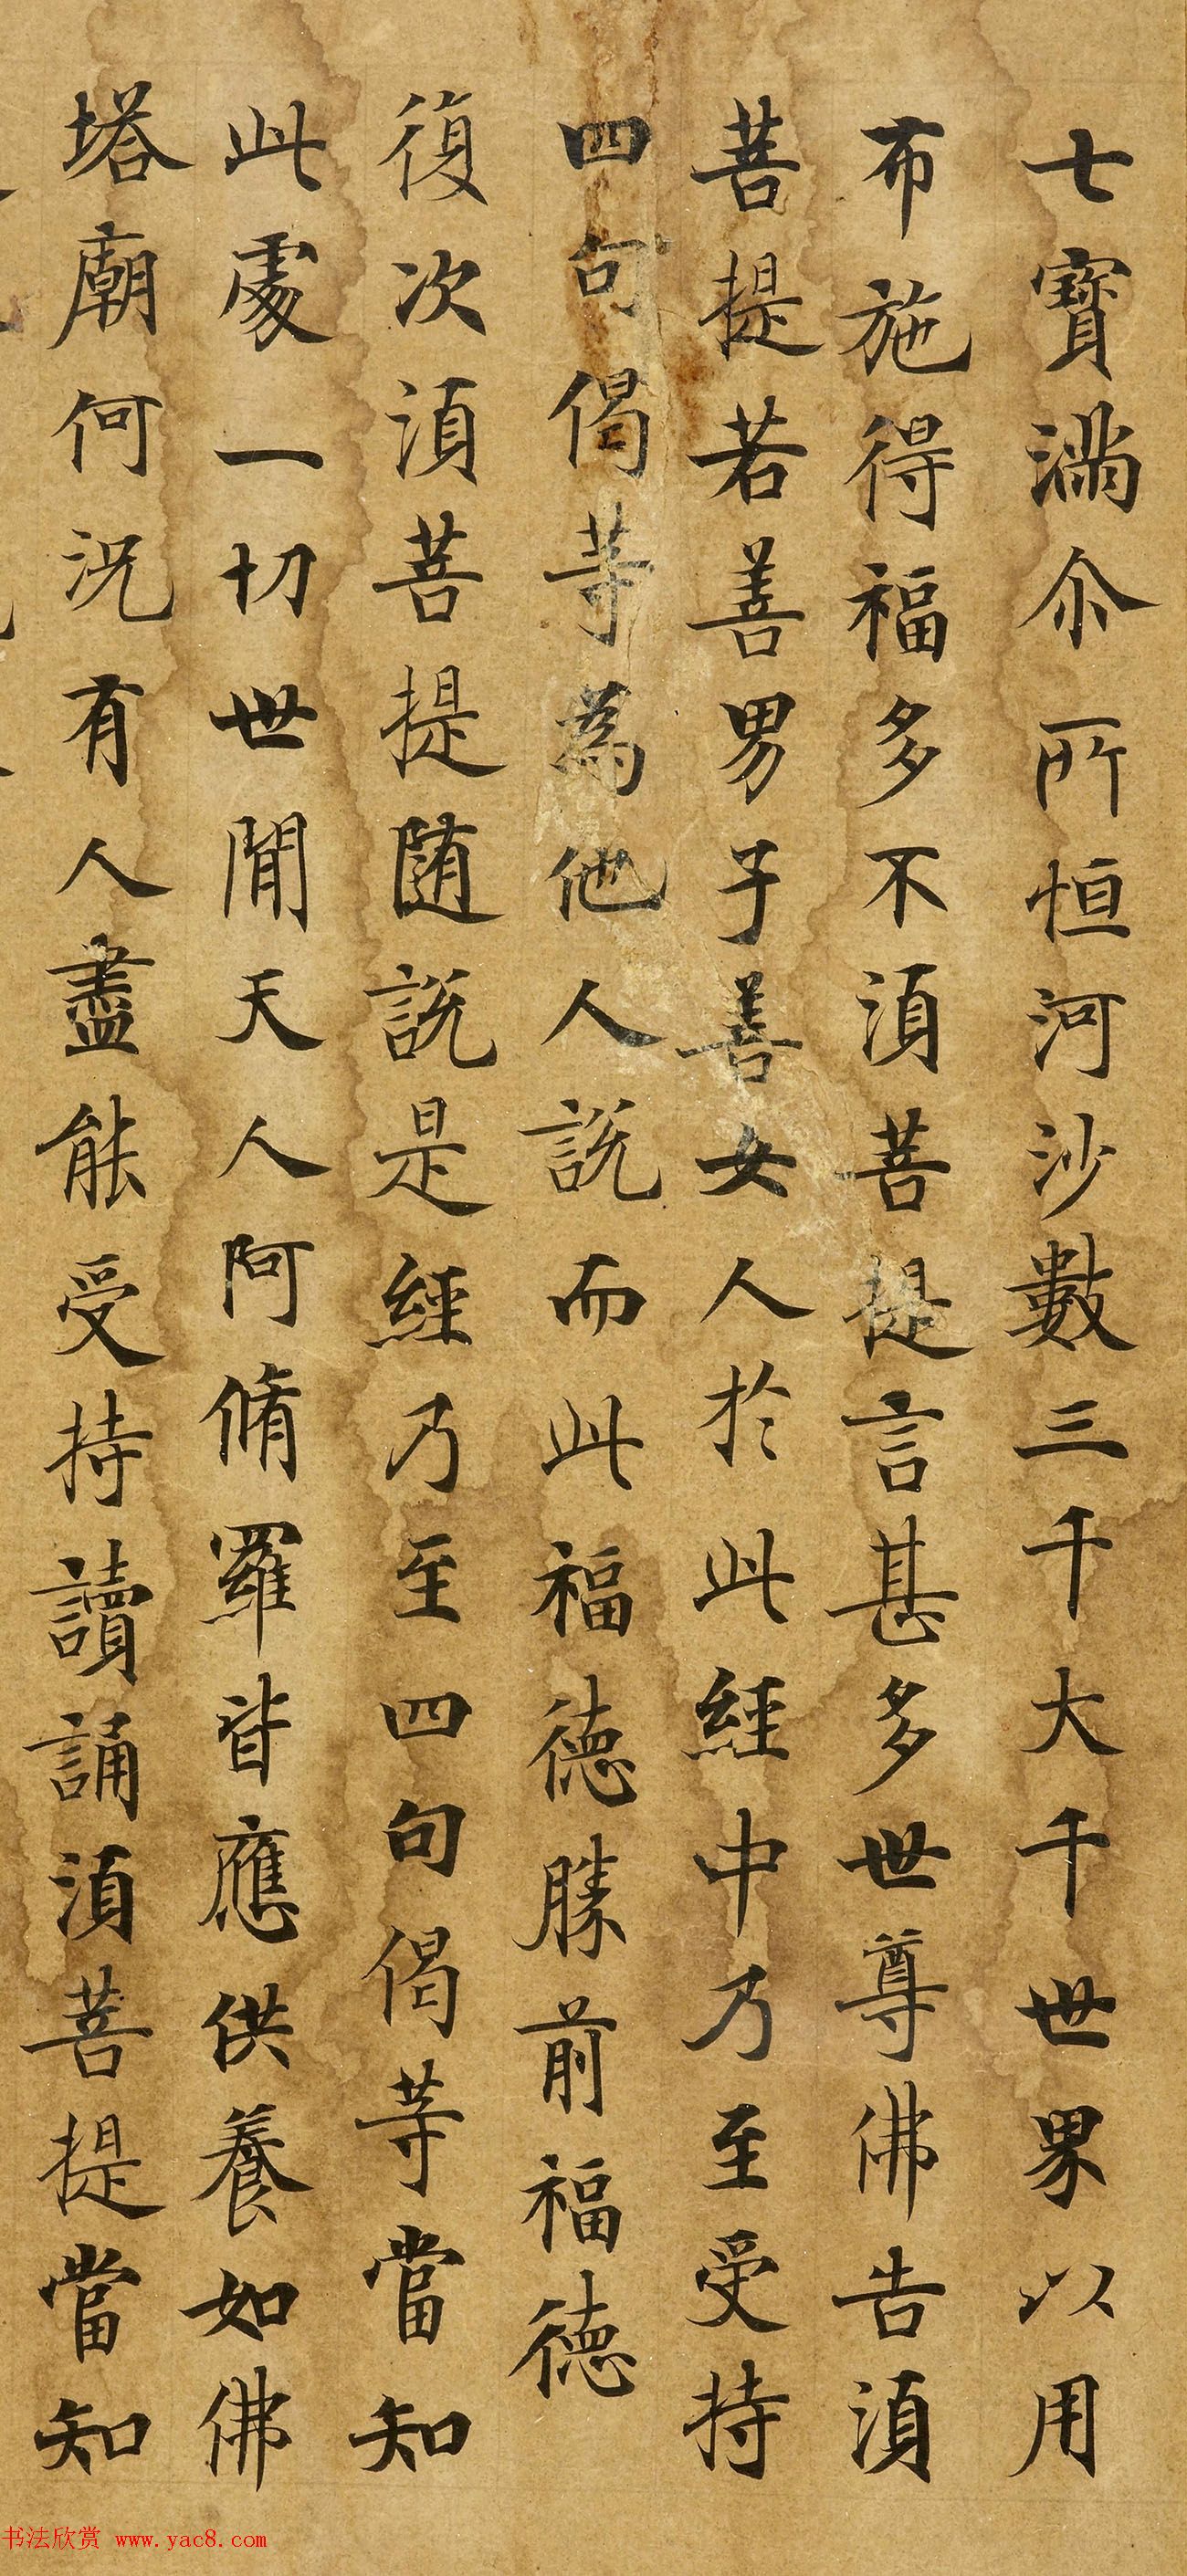 七寳滿尒所恒河沙數三千大千世界以用
布施得福多不湏菩提言甚多世尊佛告湏
菩提若善男子善女人於此經中乃至受持
四句偈等為他人說而此福德勝前福德
復次湏菩提随說是經乃至四句偈等當知
此處一切世間天人阿脩羅皆應供養如佛
塔廟何況有人盡能受持讀誦湏菩提當知
书法欣赏 www.yac8.com